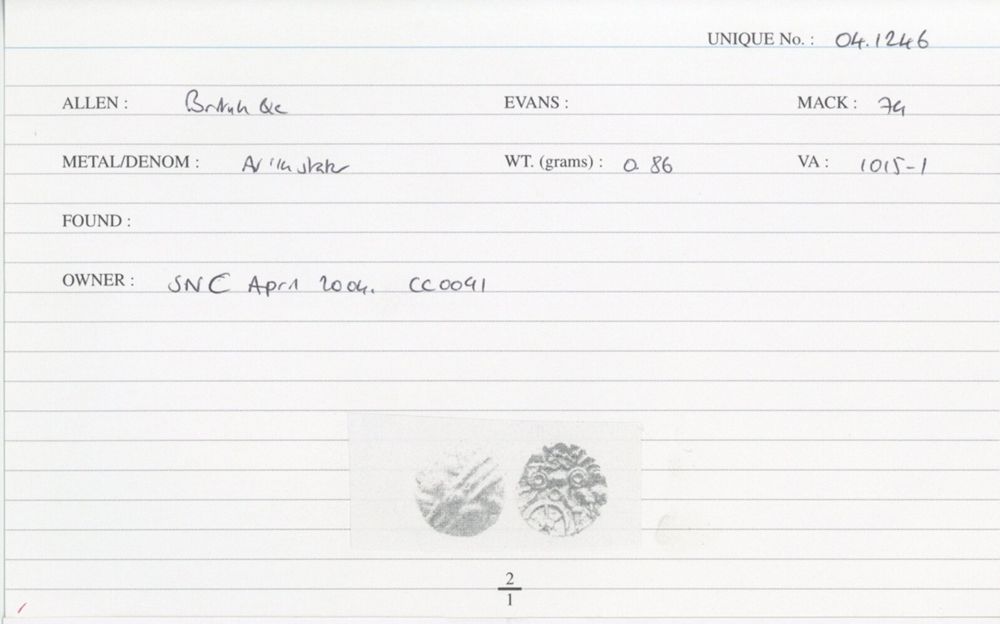 UNIQUE No. : 04.1246
ALLEN : British Qc EVANS : MACK : 74
METAL/DENOM : AV 1/4 stater WT. (grams) : 0.86 VA : 1015-1
FOUND :
OWNER : SNC April 2004. CC0041
2
1